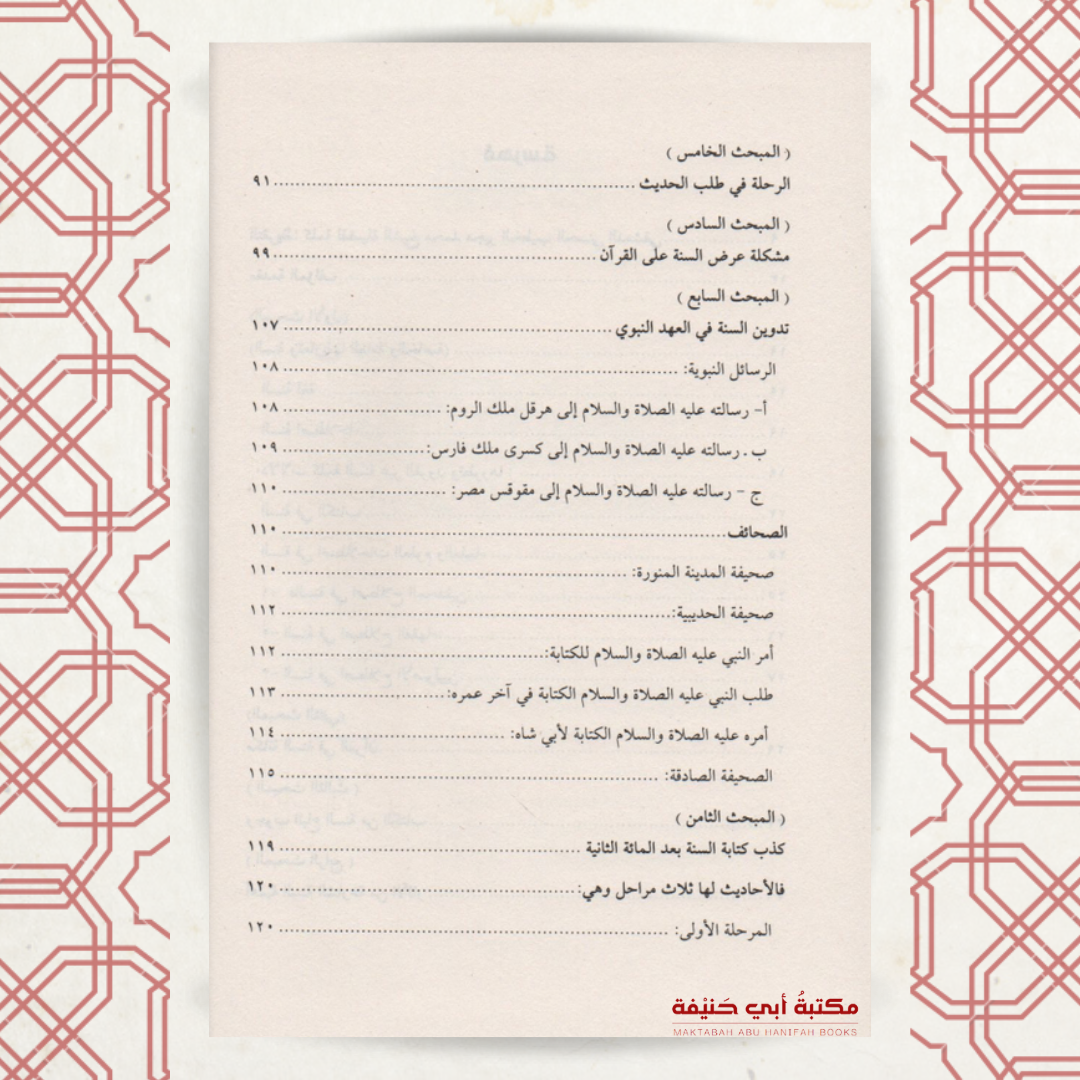 ( المبحث الخامس )
الرحلة في طلب الحديث ..... ٩١
( المبحث السادس )
مشكلة عرض السنة على القرآن ..... ٩٩
( المبحث السابع )
تدوين السنة في العهد النبوي ..... ١٠٧
الرسائل النبوية: ..... ١٠٨
أ- رسالته عليه الصلاة والسلام إلى هرقل ملك الروم: ..... ١٠٨
ب . رسالته عليه الصلاة والسلام إلى كسرى ملك فارس: ..... ١٠٩
ج - رسالته عليه الصلاة والسلام إلى مقوقس مصر: ..... ١١٠
الصحائف ..... ١١٠
صحيفة المدينة المنورة: ..... ١١٠
صحيفة الحديبية: ..... ١١٢
أمر النبي عليه الصلاة والسلام للكتابة: ..... ١١٢
طلب النبي عليه الصلاة والسلام الكتابة في آخر عمره: ..... ١١٣
أمره عليه الصلاة والسلام الكتابة لأبي شاه: ..... ١١٤
الصحيفة الصادقة: ..... ١١٥
( المبحث الثامن )
كذب كتابة السنة بعد المائة الثانية ..... ١١٩
فالأحاديث لها ثلاث مراحل وهي: ..... ١٢٠
المرحلة الأولى: ..... ١٢٠
مكتبةُ أبي حَنيْفة
MAKTABAH ABU HANIFAH BOOKS